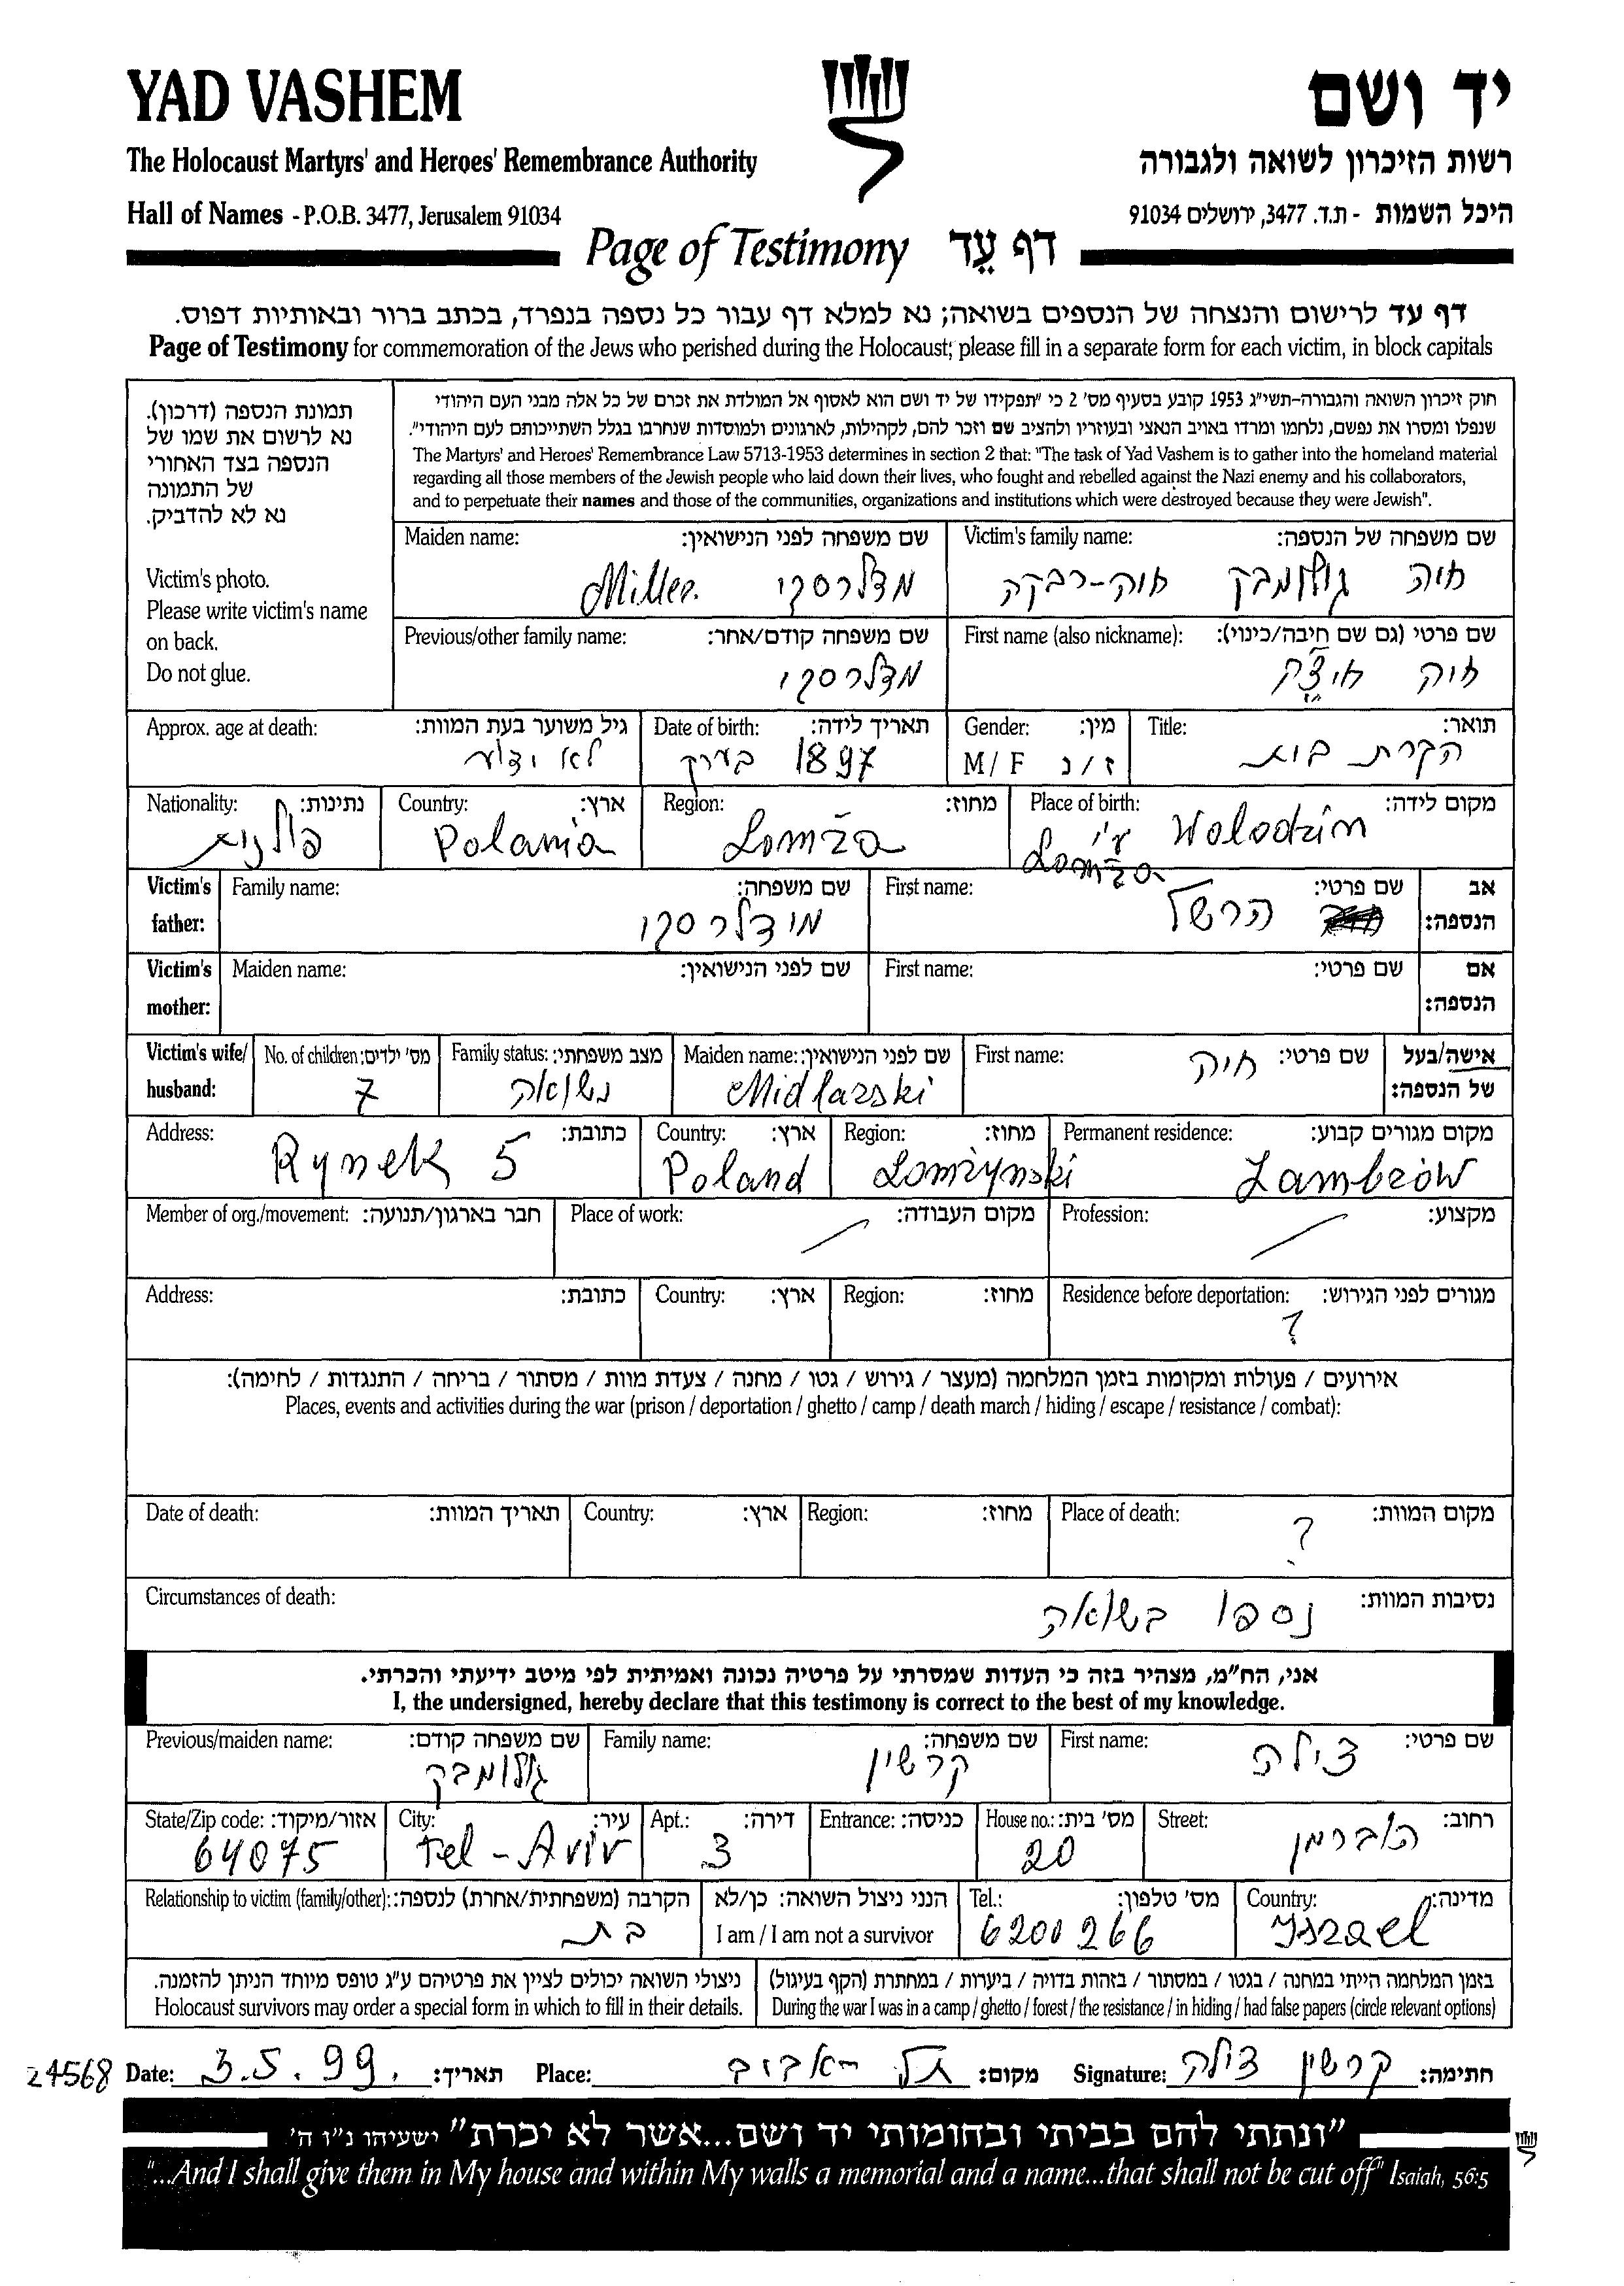 YAD VASHEM
יד ושם
The Holocaust Martyrs' and Heroes' Remembrance Authority
רשות הזיכרון לשואה ולגבורה
Hall of Names - P.O.B. 3477, Jerusalem 91034
היכל השמות - ת.ד. 3477, ירושלים 91034
Page of Testimony דף עֵד
דף עד לרישום והנצחה של הנספים בשואה; נא למלא דף עבור כל נספה בנפרד, בכתב ברור ובאותיות דפוס.
Page of Testimony for commemoration of the Jews who perished during the Holocaust; please fill in a separate form for each victim, in block capitals
תמונת הנספה (דרכון).
נא לרשום את שמו של
הנספה בצד האחורי
של התמונה
נא לא להדביק.
Victim's photo.
Please write victim's name
on back.
Do not glue.
חוק זיכרון השואה והגבורה-תשי"ג 1953 קובע בסעיף מס' 2 כי "תפקידו של יד ושם הוא לאסוף אל המולדת את זכרם של כל אלה מבני העם היהודי
שנפלו ומסרו את נפשם, נלחמו ומרדו באויב הנאצי ובעוזריו ולהציב שם וזכר להם, לקהילות, לארגונים ולמוסדות שנחרבו בגלל השתייכותם לעם היהודי".
The Martyrs' and Heroes' Remembrance Law 5713-1953 determines in section 2 that: "The task of Yad Vashem is to gather into the homeland material
regarding all those members of the Jewish people who laid down their lives, who fought and rebelled against the Nazi enemy and his collaborators,
and to perpetuate their names and those of the communities, organizations and institutions which were destroyed because they were Jewish".
Victim's family name: שם משפחה של הנספה:
חיה גולומבק חיה-רבקה
Maiden name: שם משפחה לפני הנישואין:
מדלרסקי Miller
First name (also nickname): שם פרטי (גם שם חיבה/כינוי):
חיה
Previous/other family name: שם משפחה קודם/אחר:
מדלרסקי
Title: תואר:
הקרת בית
Gender: מין:
M / F ז / נ
Date of birth: תאריך לידה:
1897 בערך
Approx. age at death: גיל משוער בעת המוות:
לא ידוע
Place of birth: מקום לידה:
Wolodzin ע"י Lomża
Region: מחוז:
Lomża
Country: ארץ:
Polania
Nationality: נתינות:
פולניה
Victim's father: אב הנספה:
First name: שם פרטי:
הרשל
Family name: שם משפחה:
מידלרסקי
Victim's mother: אם הנספה:
First name: שם פרטי:
Maiden name: שם לפני הנישואין:
Victim's wife/ husband: אישה/בעל של הנספה:
First name: שם פרטי:
חיה
Maiden name: שם לפני הנישואין:
Midlarski
Family status: מצב משפחתי:
נשואה
No. of children: מס' ילדים:
7
Permanent residence: מקום מגורים קבוע:
Zambrów
Region: מחוז:
Lomżynski
Country: ארץ:
Poland
Address: כתובת:
Rynek 5
Profession: מקצוע:
Place of work: מקום העבודה:
Member of org./movement: חבר בארגון/תנועה:
Residence before deportation: מגורים לפני הגירוש:
?
Region: מחוז:
Country: ארץ:
Address: כתובת:
אירועים / פעולות ומקומות בזמן המלחמה (מעצר / גירוש / גטו / מחנה / צעדת מוות / מסתור / בריחה / התנגדות / לחימה):
Places, events and activities during the war (prison / deportation / ghetto / camp / death march / hiding / escape / resistance / combat):
Place of death: מקום המוות:
?
Region: מחוז:
Country: ארץ:
Date of death: תאריך המוות:
Circumstances of death: נסיבות המוות:
נספו בשואה
אני, הח"מ, מצהיר בזה כי העדות שמסרתי על פרטיה נכונה ואמיתית לפי מיטב ידיעתי והכרתי.
I, the undersigned, hereby declare that this testimony is correct to the best of my knowledge.
First name: שם פרטי:
צילה
Family name: שם משפחה:
קרשין
Previous/maiden name: שם משפחה קודם:
גולומבק
Street: רחוב:
הוברמן
House no.: מס' בית:
20
Entrance: כניסה:
Apt.: דירה:
3
City: עיר:
Tel-Aviv
State/Zip code: אזור/מיקוד:
64075
Country: מדינה:
Israel
Tel.: מס' טלפון:
6200266
הנני ניצול השואה: כן/לא
I am / I am not a survivor
Relationship to victim (family/other): הקרבה (משפחתית/אחרת) לנספה:
בת
בזמן המלחמה הייתי במחנה / בגטו / במסתור / בזהות בדויה / ביערות / במחתרת (הקף בעיגול)
During the war I was in a camp / ghetto / forest / the resistance / in hiding / had false papers (circle relevant options)
ניצולי השואה יכולים לציין את פרטיהם ע"ג טופס מיוחד הניתן להזמנה.
Holocaust survivors may order a special form in which to fill in their details.
24568 Date: 3.5.99. תאריך: Place: תל-אביב מקום: Signature: קרשין צילה חתימה:
"ונתתי להם בביתי ובחומותי יד ושם...אשר לא יכרת" ישעיהו נ"ו ה'
"...And I shall give them in My house and within My walls a memorial and a name...that shall not be cut off" Isaiah, 56:5